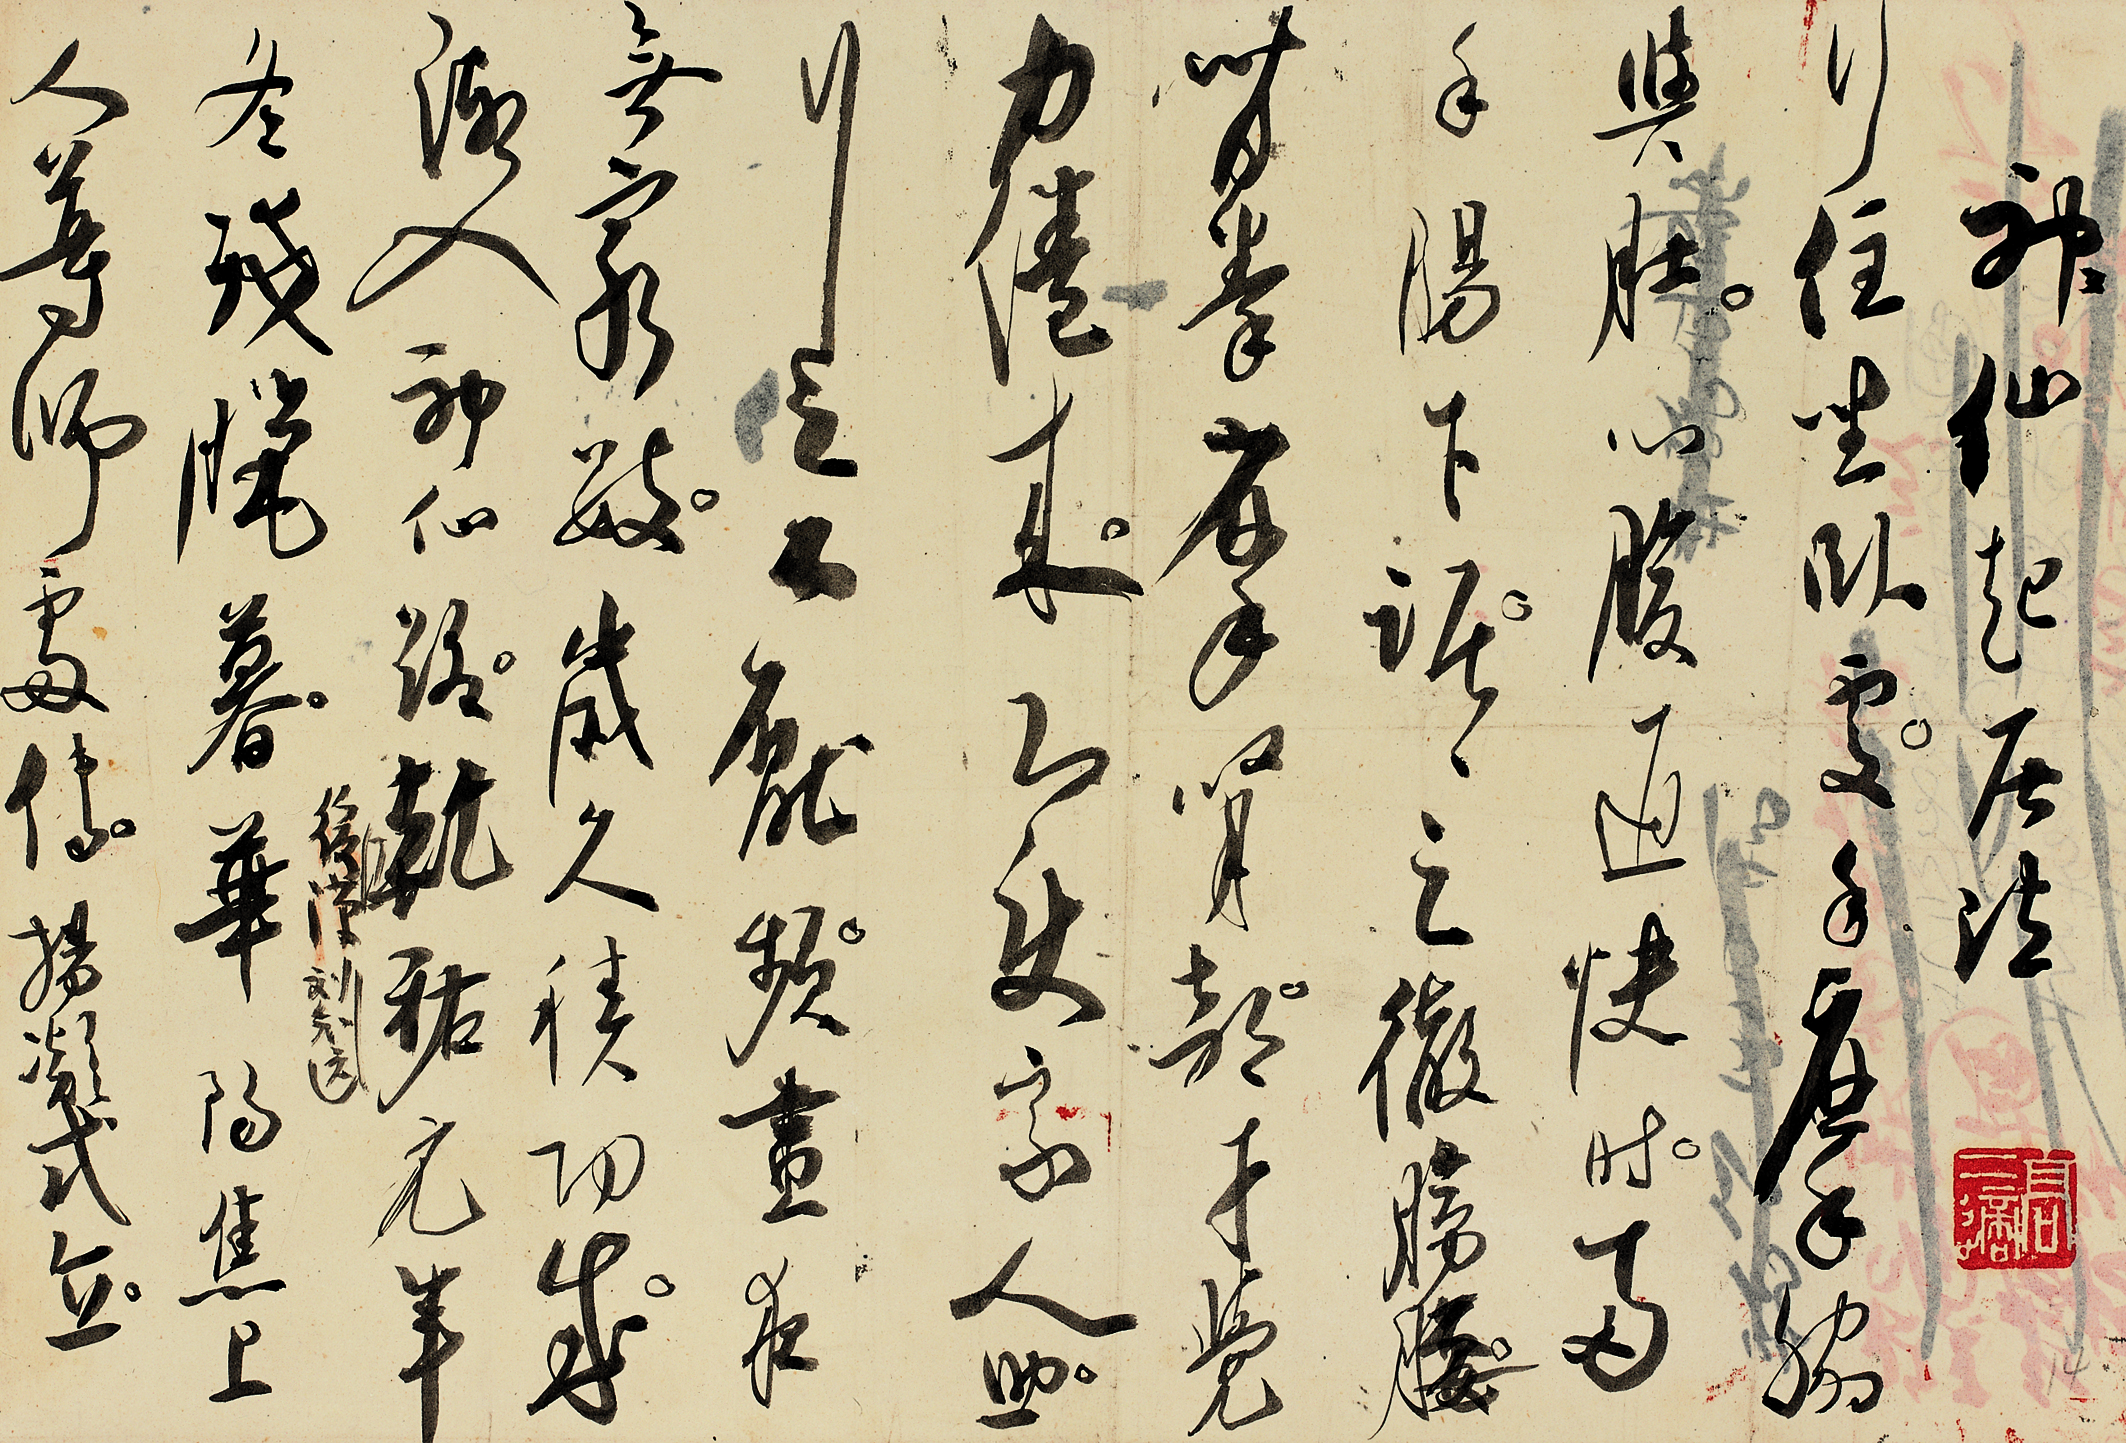 神仙起居法
行住坐卧處。手摩脇
與肚。心腹通快時。兩
手腸下踞。踞之徹膀腰。
背拳摩腎部。才覺
力倦來。即使家人助。
行之不厭頻。晝夜
無窮數。歲久積功成。
漸入神仙路。乾祐元年
後漢 刘知远
冬殘臘暮。華陽焦上
人尊師處傳。楊凝式立。
14